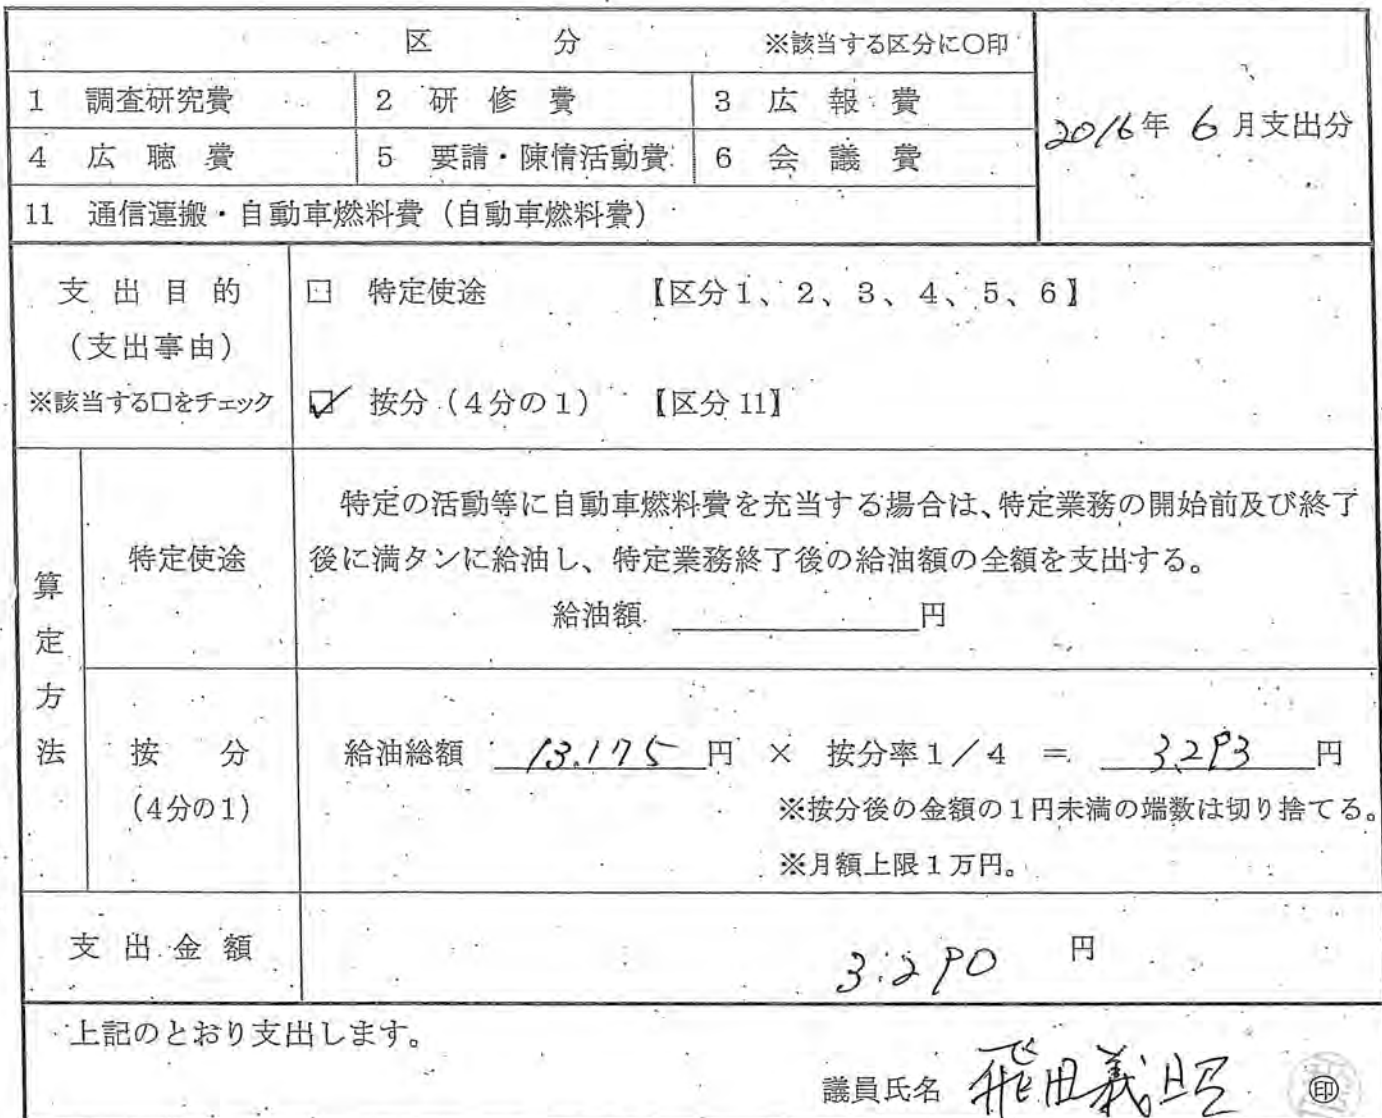 区 分 ※該当する区分に○印
1 調査研究費 2 研 修 費 3 広 報 費
2016年 6 月支出分
4 広 聴 費 5 要請・陳情活動費 6 会 議 費
11 通信運搬・自動車燃料費(自動車燃料費)
支 出 目 的
(支出事由)
※該当する□をチェック
□ 特定使途 【区分1、2、3、4、5、6】
☑ 按分(4分の1) 【区分11】
算定方法
特定使途
特定の活動等に自動車燃料費を充当する場合は、特定業務の開始前及び終了
後に満タンに給油し、特定業務終了後の給油額の全額を支出する。
給油額 円
按 分
(4分の1)
給油総額 13.175 円 × 按分率1/4 = 3,293 円
※按分後の金額の1円未満の端数は切り捨てる。
※月額上限1万円。
支 出 金 額 3.290 円
上記のとおり支出します。
議員氏名 飛田義昭 ㊞